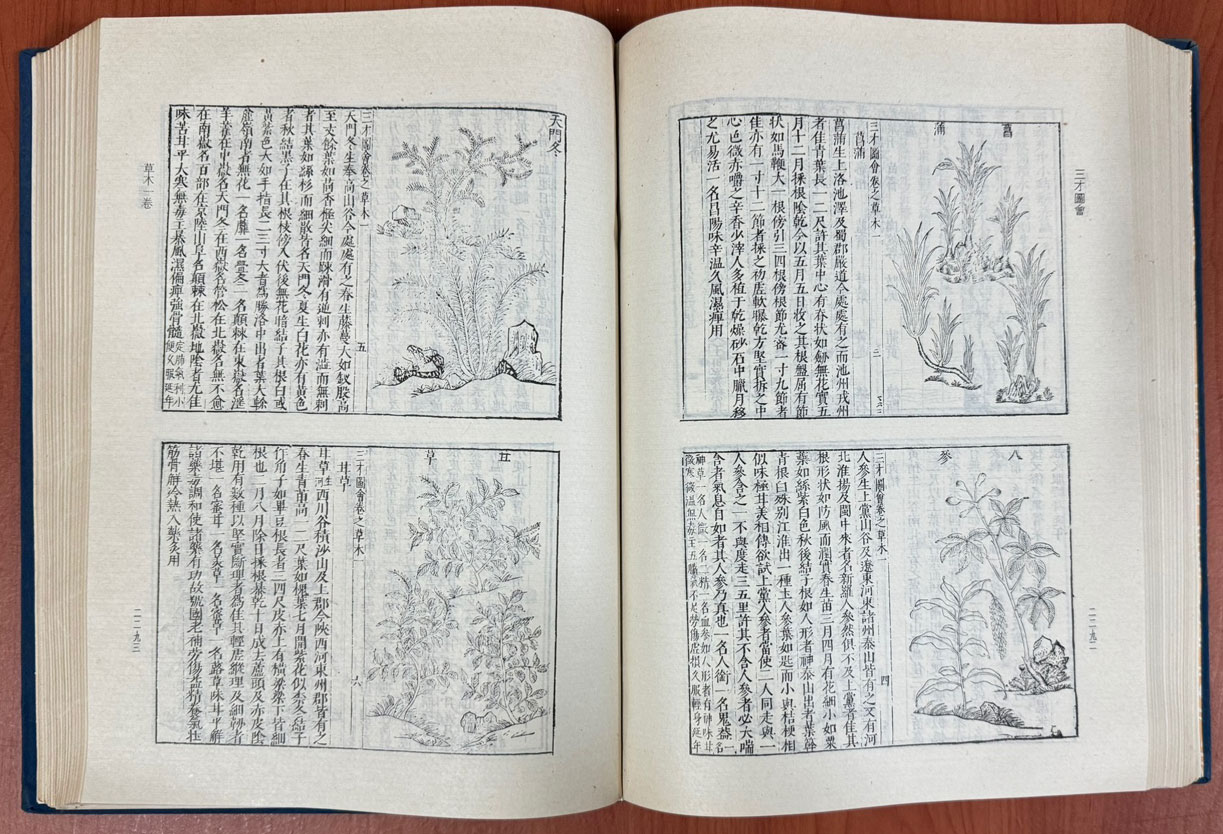 三才圖會
菖
蒲
三才圖會卷之草木一
三
菖蒲
菖蒲生上洛池澤及蜀郡嚴道今處處有之而池州戎州
者佳青葉長一二尺許其葉中心有脊狀如劒無花實五
月十二月採根陰乾今以五月五日收之其根盤屈有節
狀如馬鞭大一根傍引三四根傍根節尤密一寸九節者
佳亦有一寸十二節者採之初虛軟曝乾方堅實折之中
心色微赤嚼之辛香少滓人多植于乾燥砂石中臘月移
之尤易活一名昌陽味辛温久風濕痺用
人
參
三才圖會卷之草木一
四
人參生上黨山谷及遼東河東諸州泰山皆有之又有河
北淮揚及閩中來者名新羅人參然俱不及上黨者佳其
根形狀如防風而潤實春生苗三月四月有花細小如粟
蘂如絲紫白色秋後結子根如人形者神泰山出者葉榦
青根白殊别江淮出一種土人參葉如匙而小與桔梗相
似味極甘美相傳欲試上黨人參者當使二人同走與一
人參含之一不與度走三五里許其不含人參者必大喘
含者氣息自如者其人參乃真也一名人銜一名鬼葢一名
神草一名人一名土精一名血參如人形者有神味甘
微寒微温無毒主五臟氣不足勞傷虛損久服輕身延年
二二九二
天門冬
三才圖會卷之草木一
五
天門冬生奉高山谷今處處有之春生藤蔓大如釵股高
至丈餘葉如茴香極尖細而踈滑有逆刺亦有澁而無刺
者其葉如絲杉而細散皆名天門冬夏生白花亦有黃色
者秋結黑子在其根枝傍入伏後無花暗結子其根白或
黃紫色大如手指長二三寸大者為勝洛中出者葉大餘
嶺南者無花一名一名一名顛棘在東嶽名淫
羊在中嶽名天門冬在西嶽名管松在北嶽名無不愈
在南嶽名百部在京陸山阜名顛棘在北嶽地陰者尤佳
味苦甘平大寒無毒主暴風濕偏痺強骨髓定肺氣利小便久服延年
甘
草
三才圖會卷之草木一
六
甘草
甘草生河西川谷積沙山及上郡今陝西河東州郡皆有之
春生青苗高一二尺葉如槐葉七月開紫花似柰冬結子
作角子如畢豆根長者三四尺皮亦上有橫梁梁下皆細
根也二月八月除日採根暴乾十日成去蘆頭及赤皮陰
乾用有數種以堅實斷理者為佳其輕虛縱理及細韌者
不堪一名蜜甘一名美草一名蜜草一名路草味甘平解
諸藥毒調和使諸藥有功故號國老補勞傷益精養氣壯
筋骨解冷熱入藥炙用
草木一卷
二二九三